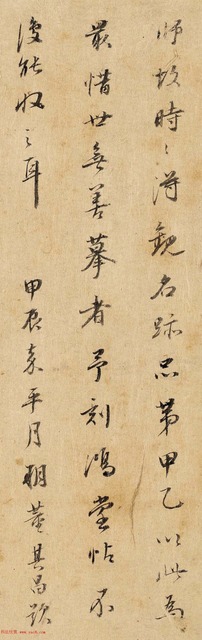 師故時時得觀名跡品第甲乙以此為
最惜世無善摹者予刻鴻堂帖不
復能收之耳
甲辰嘉平月朔董其昌題